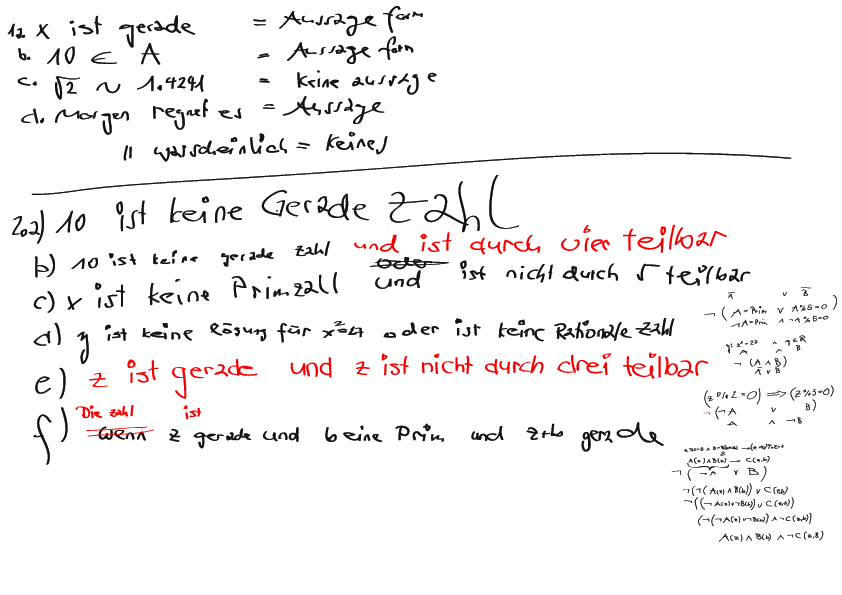 1a. x ist gerade = Aussage form
b. 10 ∈ A = Aussage form
c. √2 ~ 1.4241 = keine aussage
d. Morgen regnet es = Aussage
" warscheinlich = keines
2.a) 10 ist keine Gerade Zahl
b) 10 ist keine gerade zahl und ist durch vier teilbar
c) x ist keine Primzall und ist nicht durch 5 teilbar
d) y ist keine lösung für x²=4 oder ist keine Rationale Zahl
e) z ist gerade und z ist nicht durch drei teilbar
Die zahl ist
f) wenn z gerade und b eine Prim und z+b gerade
A ∨ B
¬(A=Prim ∨ A%5=0)
¬A=Prim ∧ ¬A%5=0
A ∧ B
¬(A ∧ B)
A ∨ B
(z%2=0) ⟹ (z%3=0)
¬(¬A ∨ B)
A ∧ ¬B
A(a) ∧ B(b) → C(a,b)
¬(¬A ∨ B)
¬(¬(A(a) ∧ B(b)) ∨ C(a,b)
¬((¬A(a) ∨ ¬B(b)) ∨ C(a,b))
(¬(¬A(a) ∨ ¬B(b)) ∧ ¬C(a,b))
A(a) ∧ B(b) ∧ ¬C(a,B)